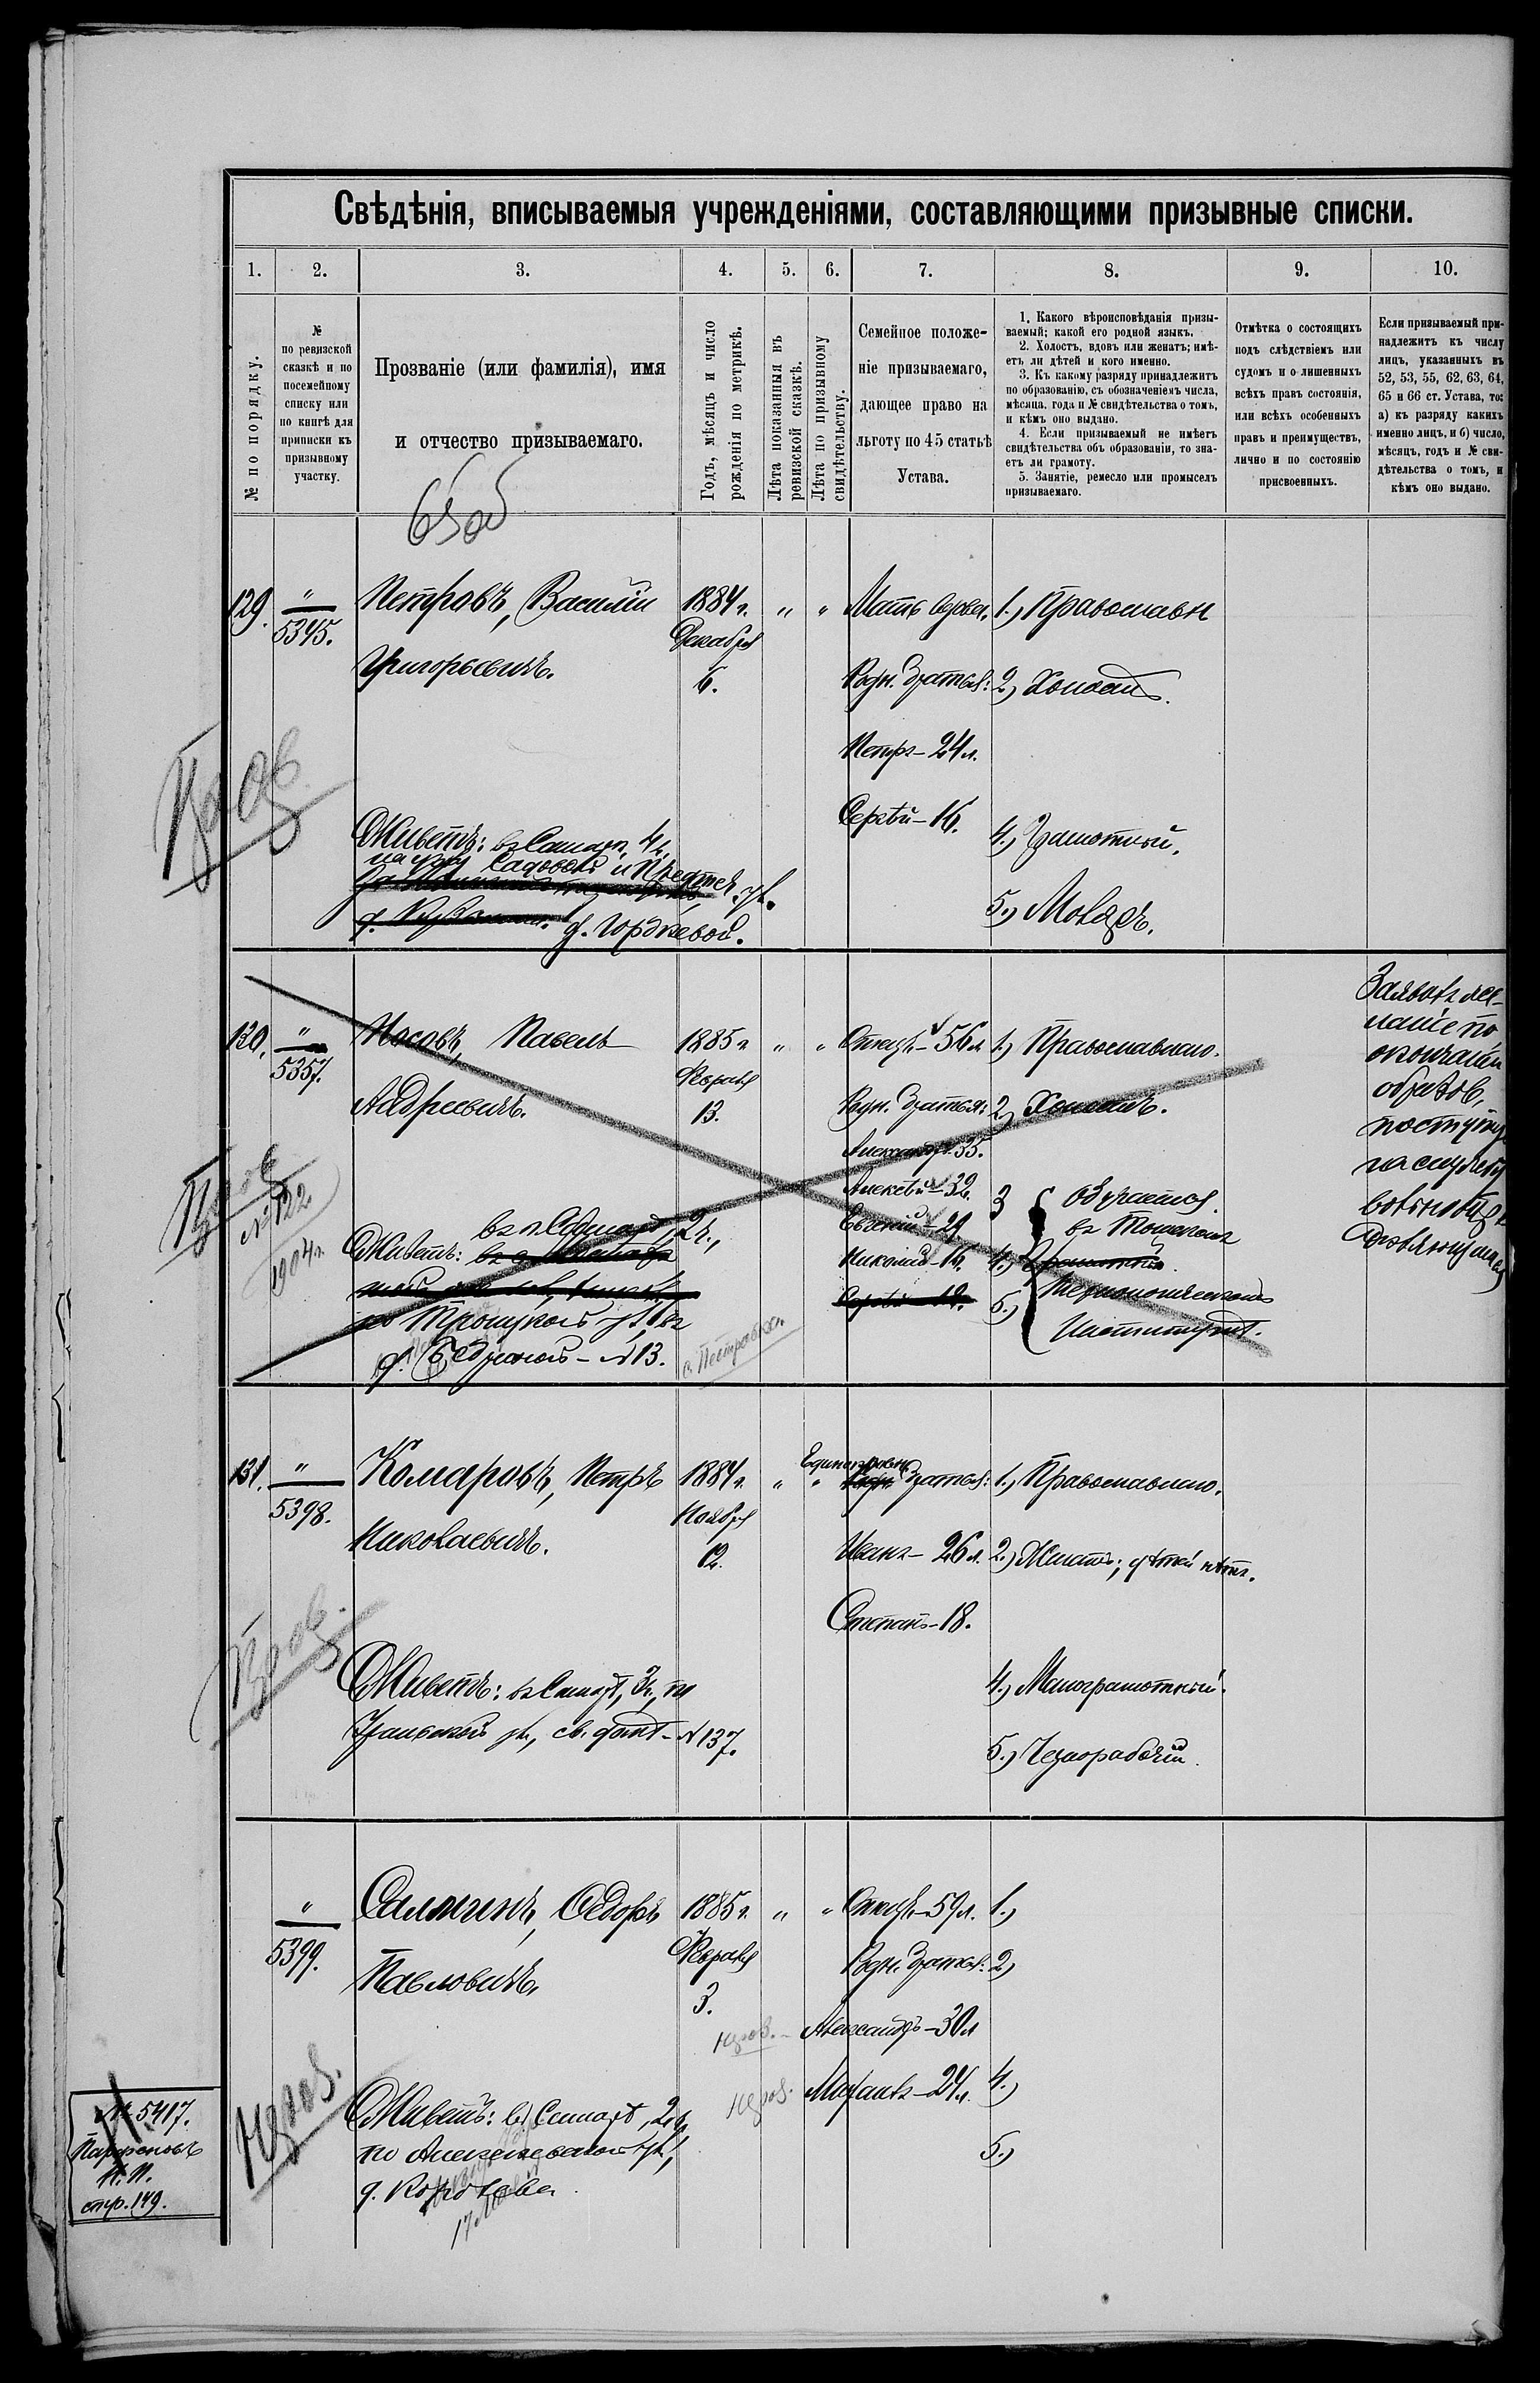 Свѣдѣнія, вписываемыя учрежденіями, составляющими призывные списки.
1. 2. 3. 4. 5. 6. 7. 8. 9. 10.
№ по порядку.
№
по ревизской
сказкѣ и по
посемейному
списку или
по книгѣ для
приписки къ
призывному
участку.
Прозваніе (или фамилія), имя
и отчество призываемаго.
Годъ, мѣсяцъ и число
рожденія по метрикѣ.
Лѣта показанныя въ
ревизской сказкѣ.
Лѣта по призывному
свидѣтельству.
Семейное положе-
ніе призываемаго,
дающее право на
льготу по 45 статьѣ
Устава.
1. Какого вѣроисповѣданія призы-
ваемый; какой его родной языкъ.
2. Холостъ, вдовъ или женатъ; имѣ-
етъ ли дѣтей и кого именно.
3. Къ какому разряду принадлежитъ
по образованію, съ обозначеніемъ числа,
мѣсяца, года и № свидѣтельства о томъ,
и кѣмъ оно выдано.
4. Если призываемый не имѣетъ
свидѣтельства объ образованіи, то зна-
етъ ли грамоту.
5. Занятіе, ремесло или промыселъ
призываемаго.
Отмѣтка о состоящихъ
подъ слѣдствіемъ или
судомъ и о лишенныхъ
всѣхъ правъ состоянія,
или всѣхъ особенныхъ
правъ и преимуществъ,
лично и по состоянію
присвоенныхъ.
Если призываемый при-
надлежитъ къ числу
лицъ, указанныхъ въ
52, 53, 55, 62, 63, 64,
65 и 66 ст. Устава, то:
а) къ разряду какихъ
именно лицъ, и б) число,
мѣсяцъ, годъ и № сви-
дѣтельства о томъ, и
кѣмъ оно выдано.
129. " 5345.
Петровъ, Василій
Григорьевичъ.
1884 г.
Декабря
6.
" "
Мать вдова.
Родн. братья:
Петръ - 24 л.
Сергѣй - 16.
1.) Православн
2.) Холостъ.
4.) Грамотный.
5.)
Живетъ: въ Самарѣ, 4 ч.
на углу Садовой и
д. Юрдкевой.
130. " 5357.
Носовъ, Павелъ
Андреевичъ.
1885 г.
Февраля
13.
" "
Отецъ - 56 л.
Родн. братья:
Александръ 35.
Алексѣй - 32.
Евгеній - 29.
Николай - 16.
1.) Православнаго.
2.) Холостъ.
3 Обучается
въ Томскомъ
4.) Грамотный.
5.) Технологическомъ
Институтѣ.
№ 122.
1904 г.
Живетъ: въ г. Самарѣ, 2 ч.,
по Троицкой ул., въ
д. - № 13.
Заявилъ же-
ланіе по
окончаніи
образов.
поступить
на службу
131. " 5398.
Комаровъ, Петръ
Николаевичъ.
1884 г.
Ноября
12.
" "
Единокровн.
братья:
Иванъ - 26 л.
Степанъ - 18.
1.) Православнаго.
2.) Женатъ; дѣтей нѣтъ.
4.) Малограмотный.
5.) Чернорабочій.
Живетъ: въ Самарѣ, 3 ч., по
Уральской ул., св. домъ - № 137.
" 5399.
Салминъ, Ѳедоръ
Павловичъ.
1885 г.
Февраля
3.
" "
Отецъ - 59 л.
Родн. братья:
Александръ - 30 л
- 24 л.
1.)
2.)
4.)
5.)
Живетъ: въ Самарѣ, 2 ч.
по Алексѣевской ул.,
№ 5417.
Парфеновъ
стр. 149.